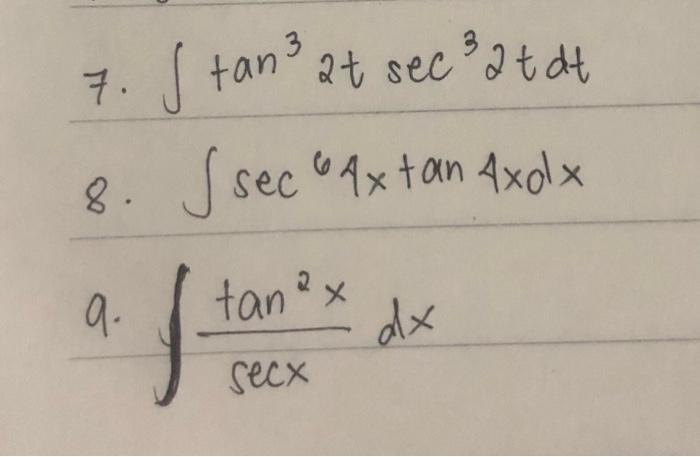 7. ∫ tan³ 2t sec³ 2t dt
8. ∫ sec⁶ 4x tan 4x dx
9. ∫ tan² x / sec x dx